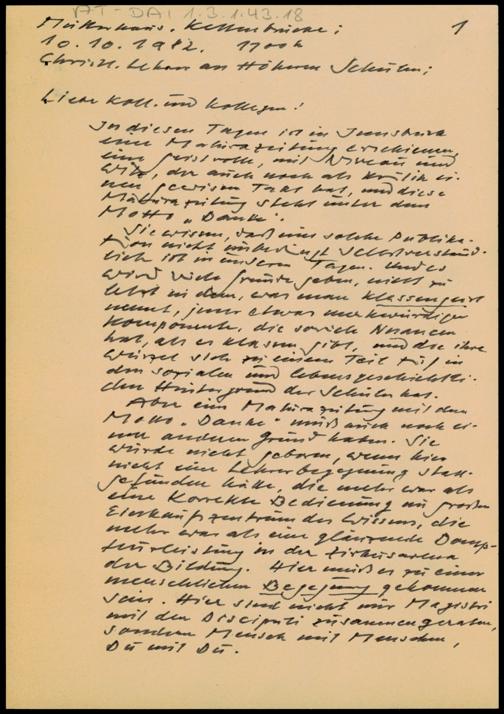 AT-DAI 1.3.1.43.18
1
Mutterhaus. Kettenbrücke;
10.10.1982. 1700h
Christl. Lehrer an Höheren Schulen;
Liebe Koll. und Kollegen!
In diesen Tagen ist in Innsbruck
eine Maturazeitung erschienen,
eine geistvolle, mit Niveau und
Witz, der auch noch als Kritik ei-
nen gewissen Takt hat, und diese
Maturazeitung steht unter dem
Motto „Danke".
Sie wissen, daß eine solche Publika-
tion nicht unbedingt selbstverständ-
lich ist in unseren Tagen. Und es
wird viele Gründe geben, nicht zu
letzt in dem, was man Klassengeist
nennt, jener etwas merkwürdigen
Komponente, die soviele Nuancen
hat, als es Klassen gibt, und die ihre
Wurzel sicher zu einem Teil tief in
den sozialen und lebensgeschichtli-
chen Hintergrund der Schüler hat.
Aber eine Maturazeitung mit dem
Motto „Danke" muß auch noch ei-
nen anderen Grund haben. Sie
würde nicht geboren, wenn hier
nicht eine Lehrerbegegnung statt-
gefunden hätte, die mehr war als
eine korrekte Bedienung im großen
Einkaufszentrum des Wissens, die
mehr war als eine glänzende Domp-
teurleistung in der Zirkusarena
der Bildung. Hier muß es zu einer
menschlichen Begegnung gekommen
sein. Hier sind nicht nur Magistri
mit den Discipuli zusammengeraten,
sondern Mensch mit Menschen,
Du mit Du.